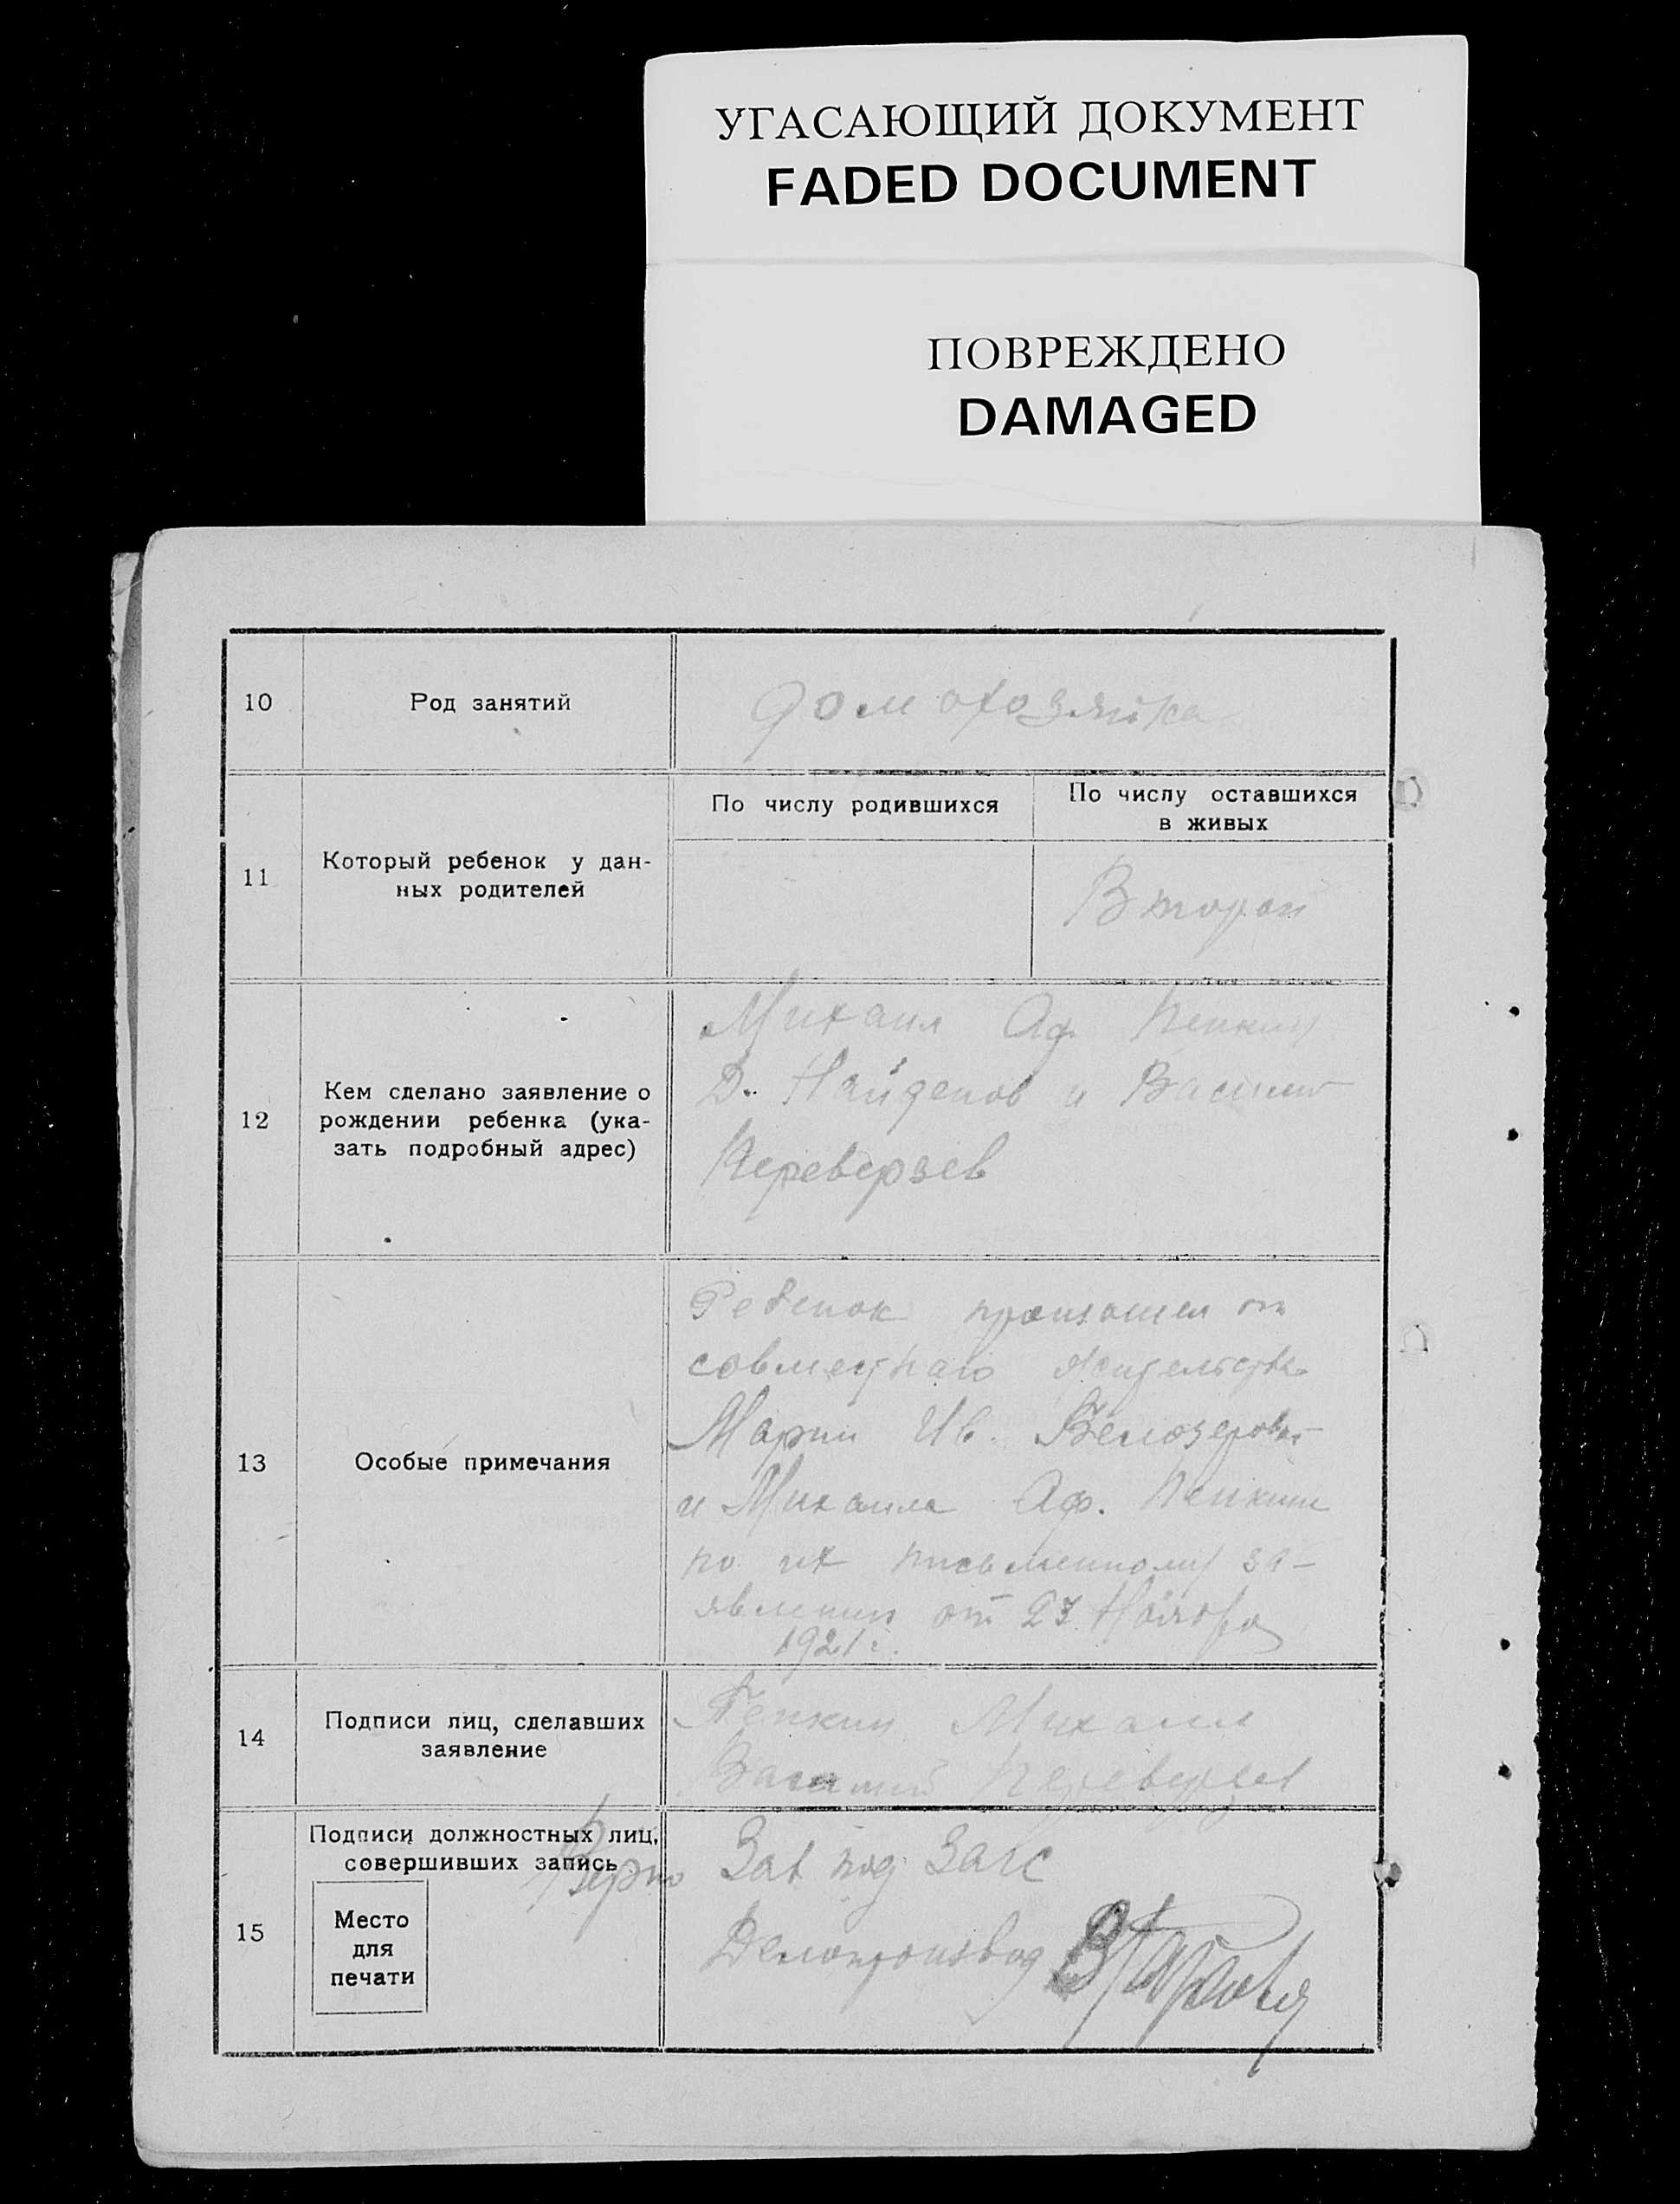 УГАСАЮЩИЙ ДОКУМЕНТ
FADED DOCUMENT
ПОВРЕЖДЕНО
DAMAGED
10
Род занятий
домохозяйка
11
Который ребенок у дан-
ных родителей
По числу родившихся
По числу оставшихся
в живых
Второй
12
Кем сделано заявление о
рождении ребенка (ука-
зать подробный адрес)
Михаил Аф. Пенкин
Д. Найденов и Василий
Переверзев
13
Особые примечания
Ребенок произошел от
совместного жительства
Марии Ив. Белозеровой
и Михаила Аф. Пенкина
по их письменному за-
явлению от 23 Ноября
1921 г.
14
Подписи лиц, сделавших
заявление
Пенкин Михаил
Василий Переверзев
15
Подписи должностных лиц,
совершивших запись
Место
для
печати
Верно
Зав под Загс
Делопроизвод